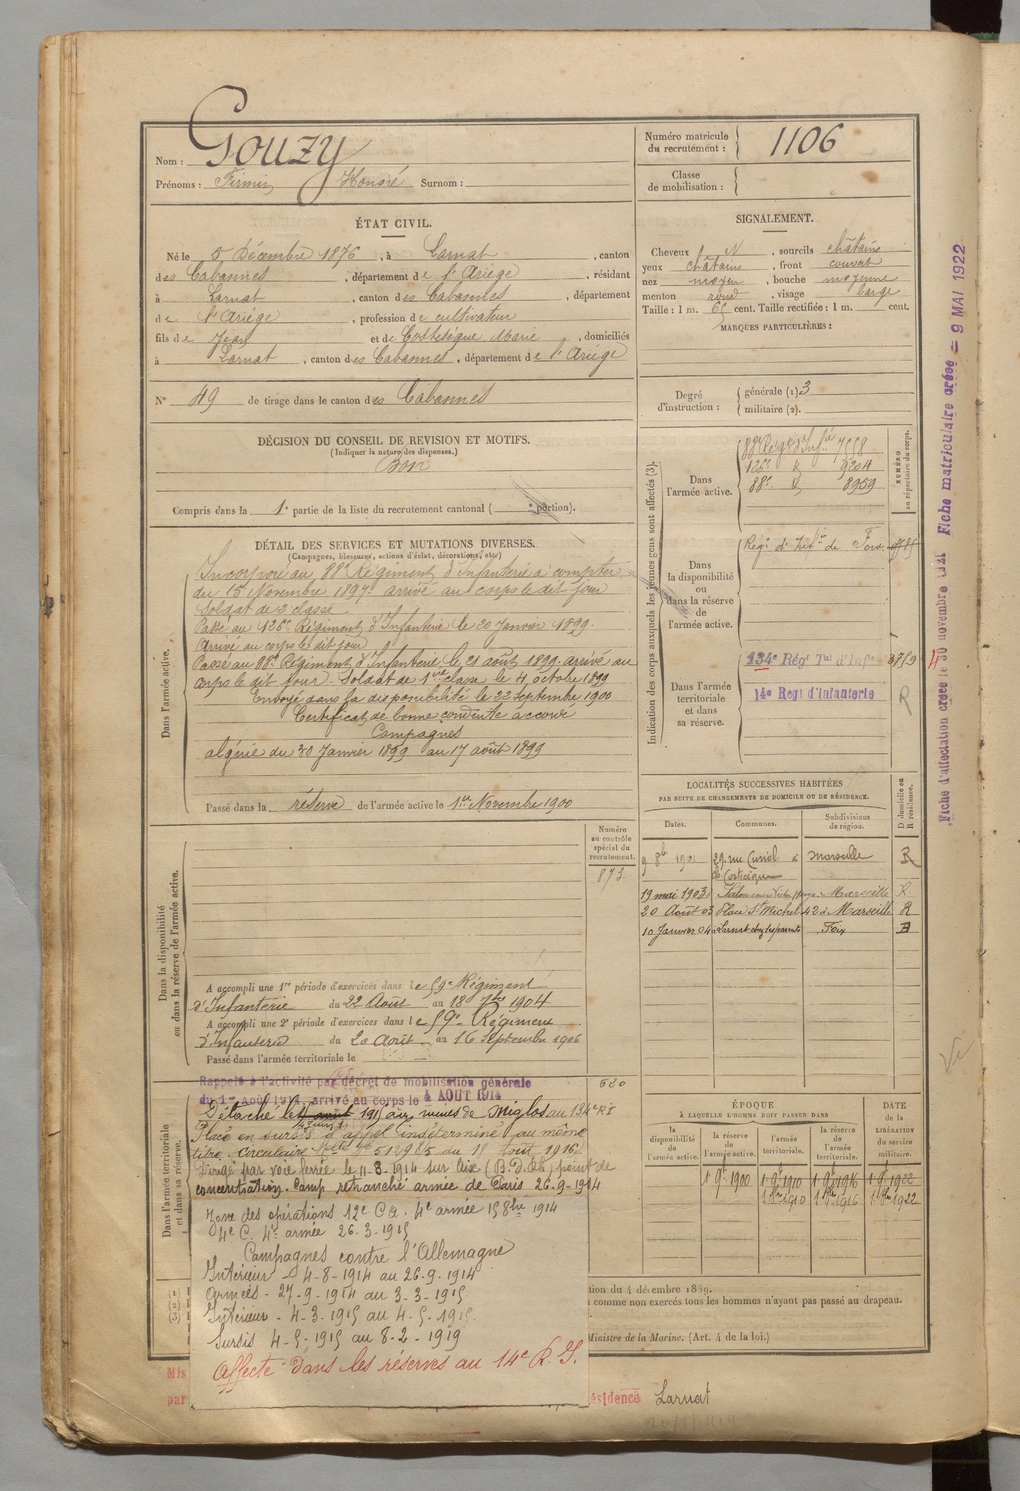 Nom : Gouzy
Prénoms : Firmin Honoré Surnom :
Numéro matricule du recrutement : 1106
Classe de mobilisation :
ÉTAT CIVIL.
Né le 5 Décembre 1876, à Larnat, canton
des Cabannes, département de l'Ariège, résidant
à Larnat, canton des Cabannes, département
de l'Ariège, profession de cultivateur
fils de Jean et de Marie, domiciliés
à Larnat, canton des Cabannes, département de l'Ariège
N° 49 de tirage dans le canton des Cabannes
SIGNALEMENT.
Cheveux N, sourcils châtains
yeux châtains, front couvert
nez moyen, bouche moyenne
menton rond, visage large
Taille : 1 m. 65 cent. Taille rectifiée : 1 m. cent.
MARQUES PARTICULIÈRES :
Degré d'instruction : générale (1) 3
militaire (2).
DÉCISION DU CONSEIL DE REVISION ET MOTIFS.
(Indiquer la nature des dispenses.)
Bon
Compris dans la 1e partie de la liste du recrutement cantonal ( portion).
DÉTAIL DES SERVICES ET MUTATIONS DIVERSES.
(Campagnes, blessures, actions d'éclat, décorations, etc.)
Dans l'armée active.
Incorporé au 88e Régiment d'infanterie à compter
du 15 Novembre 1897. arrivé au corps le dit jour
Soldat de 2e classe
Passé au 126e Régiment d'Infanterie le 20 Janvier 1899.
Arrivé au corps le dit jour
Passé au 88e Régiment d'Infanterie le 21 août 1899 arrivé au
corps le dit jour. Soldat de 1ère classe le 4 octobre 1899
Envoyé dans la disponibilité le 22 septembre 1900
Certificat de bonne conduite accordé
Campagnes
algérie du 20 Janvier 1899 au 17 août 1899
Passé dans la réserve de l'armée active le 1er Novembre 1900
Indication des corps auxquels les jeunes gens sont affectés (3).
NUMÉRO au répertoire du corps.
Dans l'armée active.
88e Régt d'Infie 7558
126e d 9204
88e d 8959
Dans la disponibilité ou dans la réserve de l'armée active.
Régt d'Infie de Foix
Dans l'armée territoriale et dans sa réserve.
134e Régt Tal d'Infie
14e Regt d'Infanterie R
LOCALITÉS SUCCESSIVES HABITÉES
PAR SUITE DE CHANGEMENTS DE DOMICILE OU DE RÉSIDENCE.
Dates. Communes. Subdivisions de région. D domicile ou R résidence.
9 8b 1901 29, rue Curiol Marseille R
19 mai 1903 Marseille R
20 Août 03 Place St Michel 42 à Marseille R
10 Janvier 04 Larnat chez ses parents Foix
Numéro au contrôle spécial du recrutement.
873
Dans la disponibilité ou dans la réserve de l'armée active.
A accompli une 1re période d'exercices dans le 59e Régiment
d'Infanterie du 22 Août au 18 7bre 1904
A accompli une 2e période d'exercices dans le 59e Régiment
d'Infanterie du 20 Août au 16 Septembre 1906
Passé dans l'armée territoriale le
Dans l'armée territoriale et dans sa réserve.
Rappelé à l'activité par décret de mobilisation générale
du 1er Août 1914, arrivé au corps le 4 AOUT 1914
620
Détaché le 1915 aux mines de Miglos au 134e RI
Placé en sursis d'appel indéterminé au même
titre, circulaire du 18 Août 1916
Dirigé par voie ferrée le sur Aix (B.D.R.) point de
concentration. Camp retranché armée de Paris 26.9.1914
Zone des opérations 12e C.A. 4e armée 15 8bre 1914
4e C. 4e armée 26.3.1915
Campagnes contre l'Allemagne
Intérieur - 4-8-1914 au 26-9-1914
Armées - 27-9-1914 au 3-3-1915
Intérieur - 4-3-1915 au 4-5-1915
Sursis 4-5-1915 au 8-2-1919
Affecté dans les réserves au 14e R.I.
ÉPOQUE
À LAQUELLE L'HOMME DOIT PASSER DANS
la disponibilité de l'armée active. la réserve de l'armée active. l'armée territoriale. la réserve de l'armée territoriale.
DATE de la LIBÉRATION du service militaire.
1 9b 1900 1 9b 1910 1 9b 1916 1 9b 1922
1 8bre 1910 1 8bre 1916 1 8bre 1922
(1)
(2)
(3)
tion du 4 décembre 1889.
comme non exercés tous les hommes n'ayant pas passé au drapeau.
Ministre de la Marine. (Art. 4 de la loi.)
Mis
par
ésidence Larnat
Fiche d'affectation créée le 30 novembre 1921
Fiche matriculaire créée = 9 MAI 1922